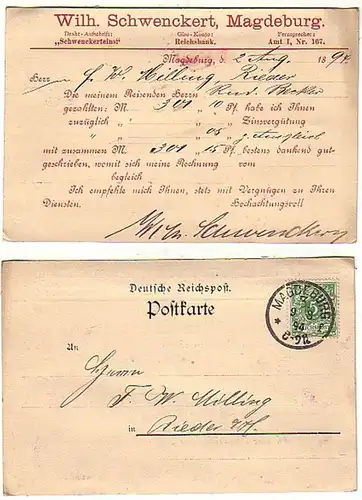 Wilh. Schwenckert, Magdeburg.
Draht-Aufschrift: Giro-Konto: Fernsprecher:
„Schwenckerteinst“ Reichsbank. Amt I, Nr. 167.
Magdeburg, d. 2 Aug. 1894
Herr F. W. Milling Rieder
Die meinem Reisenden Herrn Rud. Becker
gezahlten: M. 301 10 Pf. habe ich Ihnen
zuzüglich „ „ Zinsvergütung
„ „ 05 „ z. Ausgleich
mit zusammen M. 301 15 Pf. bestens dankend gut-
geschrieben, womit sich meine Rechnung vom
begleich
Ich empfehle mich Ihnen, stets mit Vergnügen zu Ihren
Diensten. Hochachtungsvoll
Wilh. Schwenckert
Deutsche Reichspost.
Postkarte
MAGDEBURG
94
An
Herrn
F. W. Milling
in Rieder a/H.